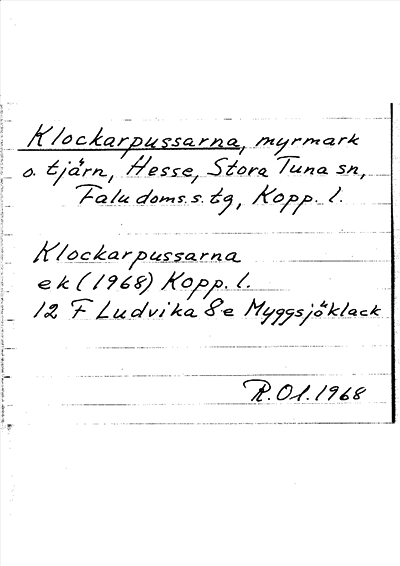 Klockarpussarna, myrmark
o. tjärn, Hesse, Stora Tuna sn,
Falu doms. s. tg, Kopp. l.
Klockarpussarna
ek (1968) Kopp. l.
12 F Ludvika 8 e Myggsjöklack
R. Ol. 1968